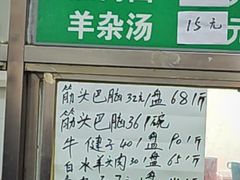 羊杂汤 15元
筋头巴脑32元/盘 68/斤
筋头巴脑36/碗
牛健子40/盘 90/斤
白水羊头肉30/盘 65/斤